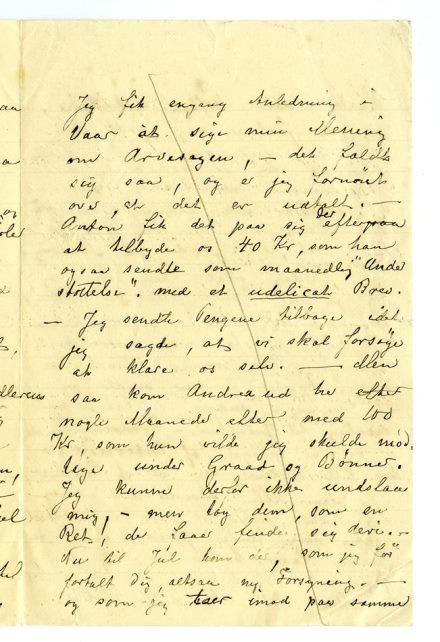 Jeg fik engang Anledning i
Vaar at sige min Mening
om Arvesagen, — det faldt
sig saa, og er jeg fornøiet
over, at det er udtalt. —
Anton fik det paa sig der efter paa
at tilbyde os 40 Kr, som han
ogsaa sendte som maanedlig "Unde
støttelse". med et udelicat Brev.
— Jeg sendte Pengene tilbage idet
jeg sagde, at vi skal forsøge
at klare os selv. — Men
saa kom Andrea ud he efter
nogle Maaneder efter med 100
Kr, som hun vilde jeg skulde mod-
tage under Graad og Bønner.
Jeg kunne derfor ikke undslaa
mig, — men tog dem, som en
Ret, de faar finde sig deri. —
Nu til Jul kom der, som jeg før
fortalt Dig, altsaa ny Forsyning. —
og som jeg taer imod paa samme